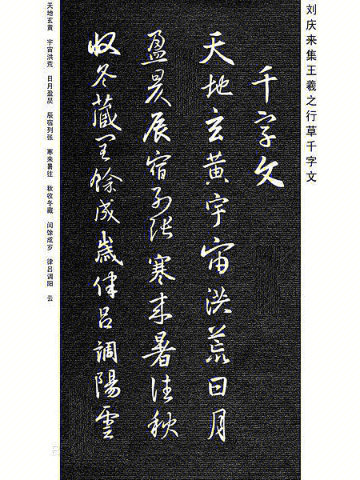 刘庆来集王羲之行草千字文
千字文
天地玄黃宇宙洪荒日月
盈昃辰宿列張寒来暑往秋
收冬藏閏餘成歲律呂調陽雲
天地玄黄 宇宙洪荒 日月盈昃 辰宿列张 寒来暑往 秋收冬藏 闰馀成岁 律吕调阳 云